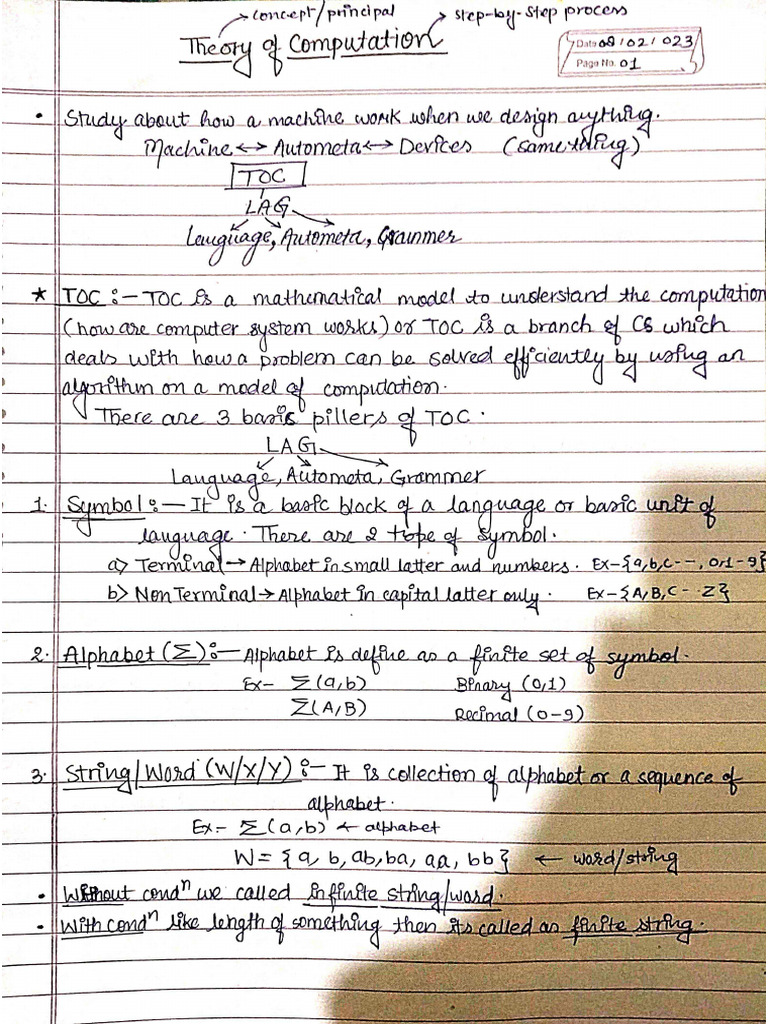 concept/principal step-by-step process
Theory of Computation
Date 08/02/023
Page No. 01
• Study about how a machine work when we design anything.
Machine ↔ Autometa ↔ Devices (same thing)
TOC
LAG
Language, Autometa, Grammer
* TOC :- TOC is a mathematical model to understand the computation
(how are computer system works) or TOC is a branch of CS which
deals with how a problem can be solved efficiently by using an
algorithm on a model of computation.
There are 3 basic pillers of TOC.
LAG
Language, Autometa, Grammer
1. Symbol :- It is a basic block of a language or basic unit of
language. There are 2 type of symbol.
a> Terminal → Alphabet in small latter and numbers. Ex-{a,b,c--, 0,1-9}
b> Non Terminal → Alphabet in capital latter only. Ex-{A,B,C-- Z}
2. Alphabet (Σ) :- Alphabet is define as a finite set of symbol.
Ex- Σ(a,b) Binary (0,1)
Σ(A,B) Decimal (0-9)
3. String/Word (W/X/Y) :- It is collection of alphabet or a sequence of
alphabet.
Ex- Σ(a,b) ← alphabet
W = {a, b, ab, ba, aa, bb} ← word/string
• Without condⁿ we called infinite string/word.
• With condⁿ like length of something then its called as finite string.